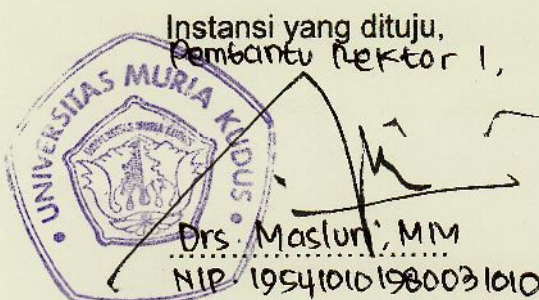 Instansi yang dituju,
Pembantu Rektor 1,
UNIVERSITAS MURIA KUDUS
UNIVERSITAS MURIA KUDUS
Drs. Masluri, MM
NIP 195410101980031010